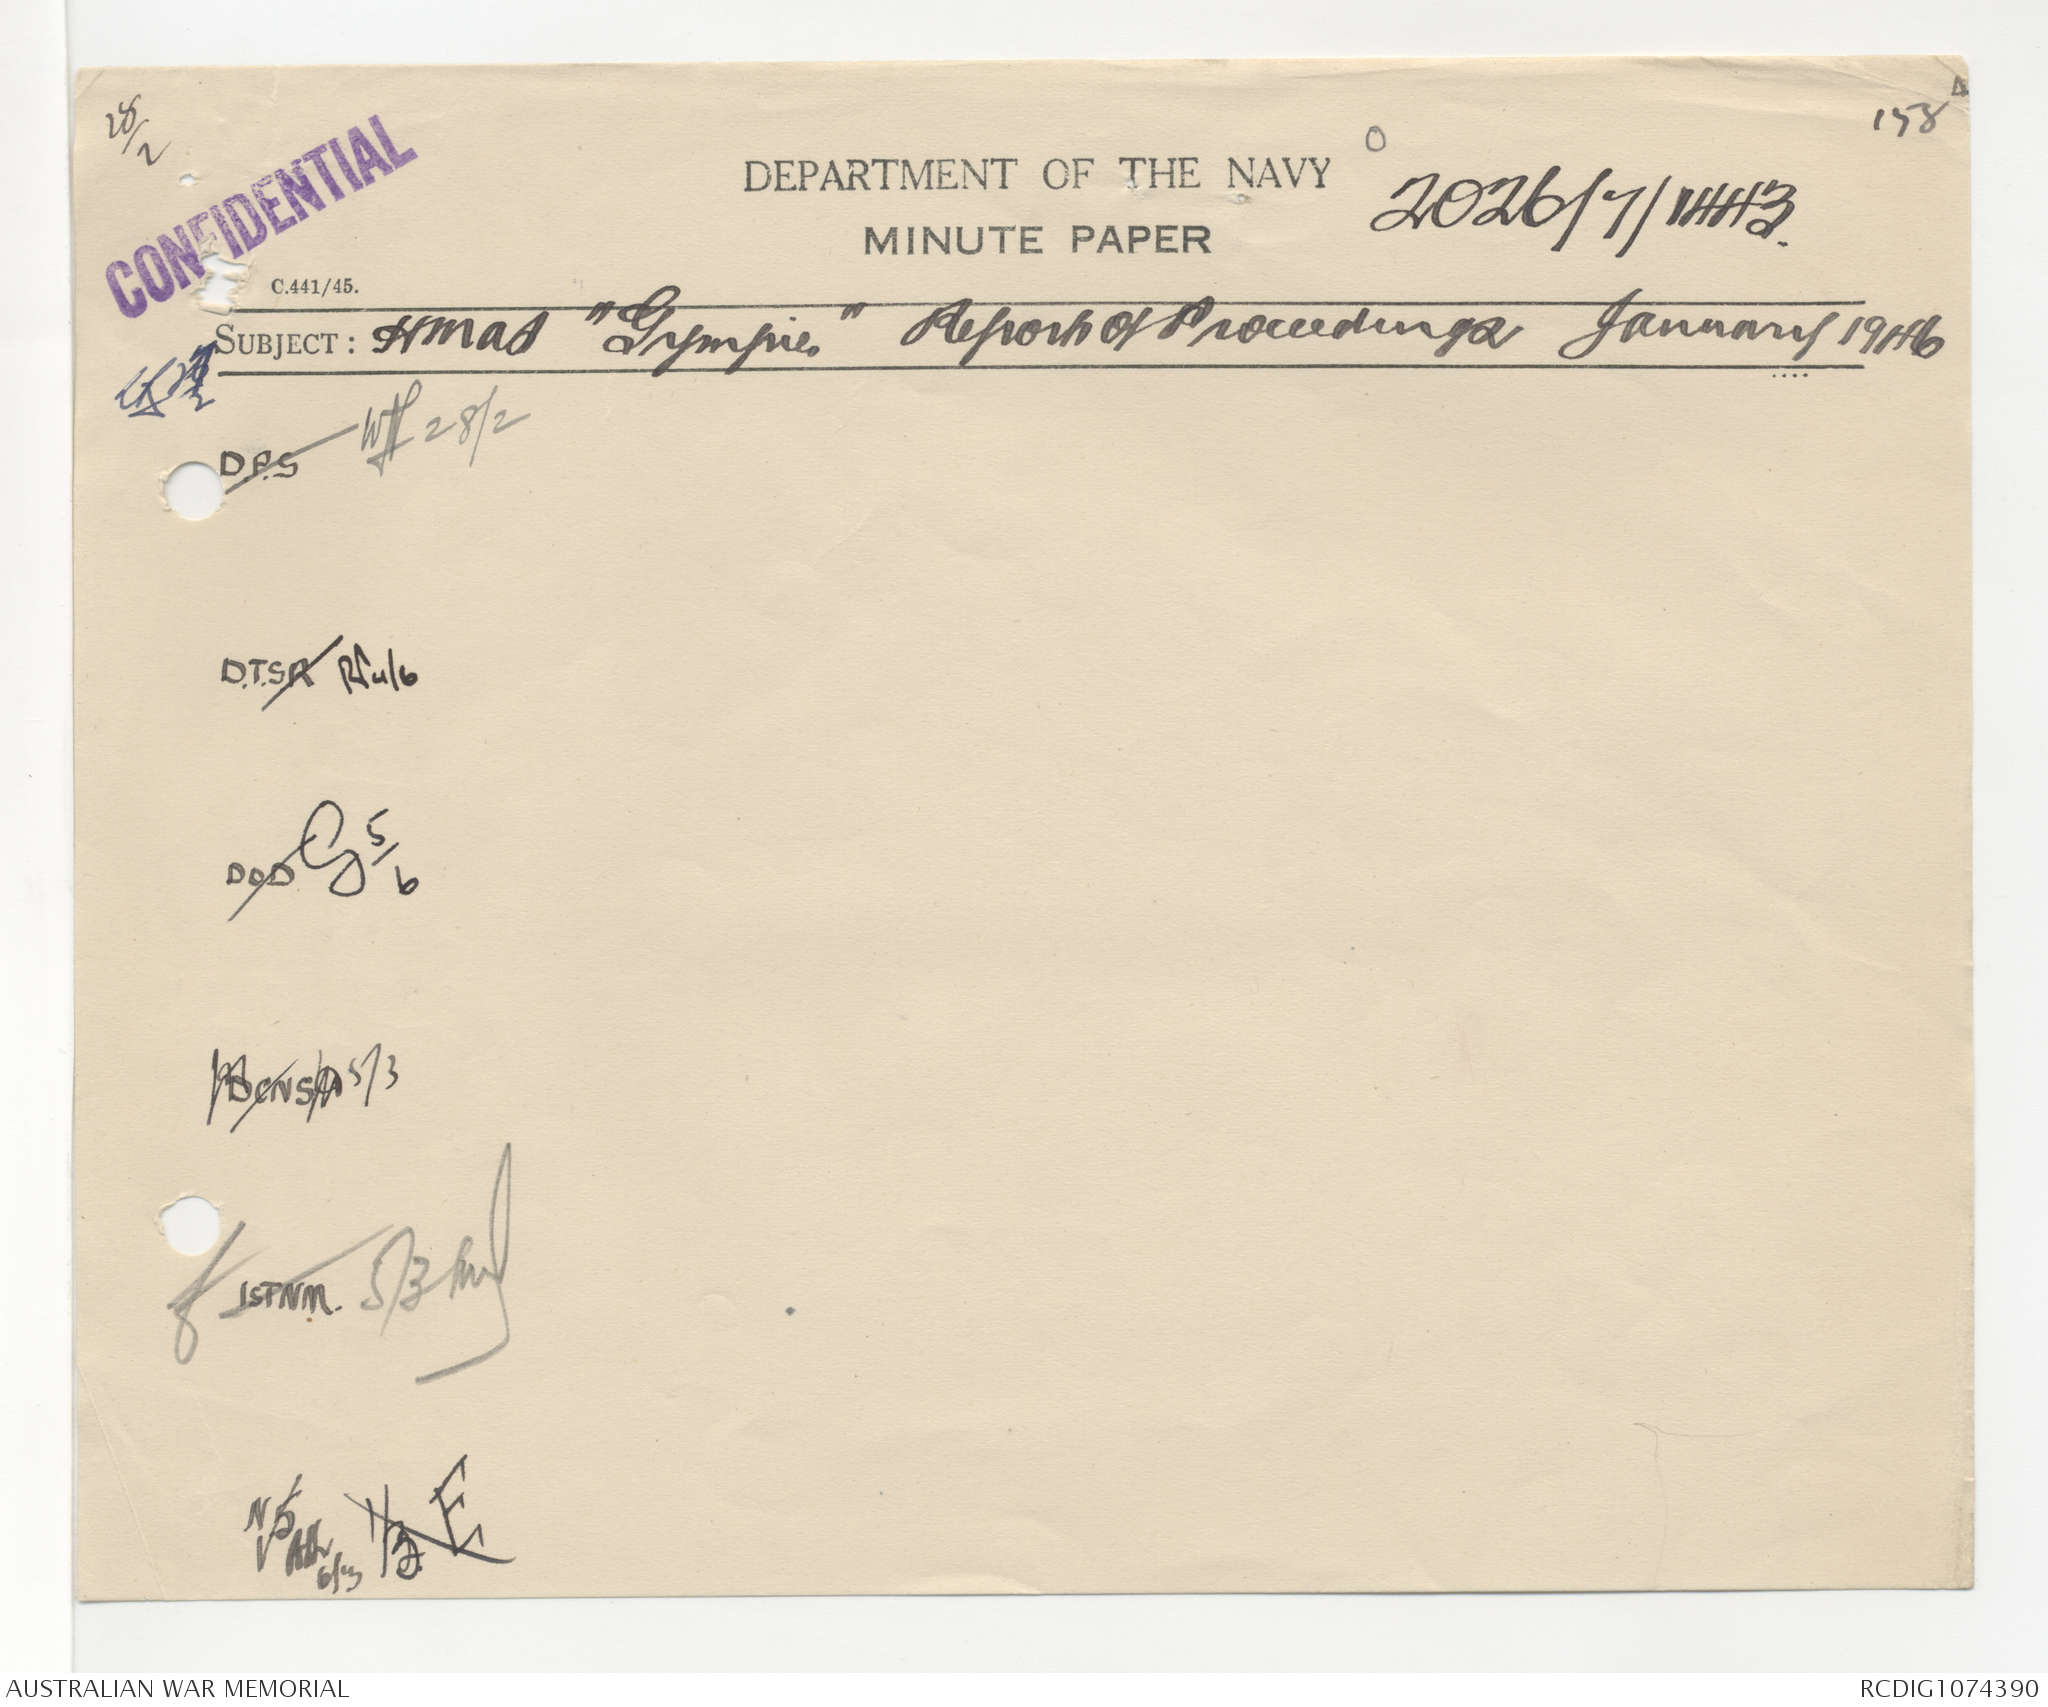 28/2
158
CONFIDENTIAL
DEPARTMENT OF THE NAVY
MINUTE PAPER
C.441/45.
SUBJECT: HMAS "Gympie" Report of Proceedings January 1946
D.P.S 28/2
D.T.S.R
DOD 5/6
DCNS 5/3
1STNM. 5/3
6/3
AUSTRALIAN WAR MEMORIAL
RCDIG1074390